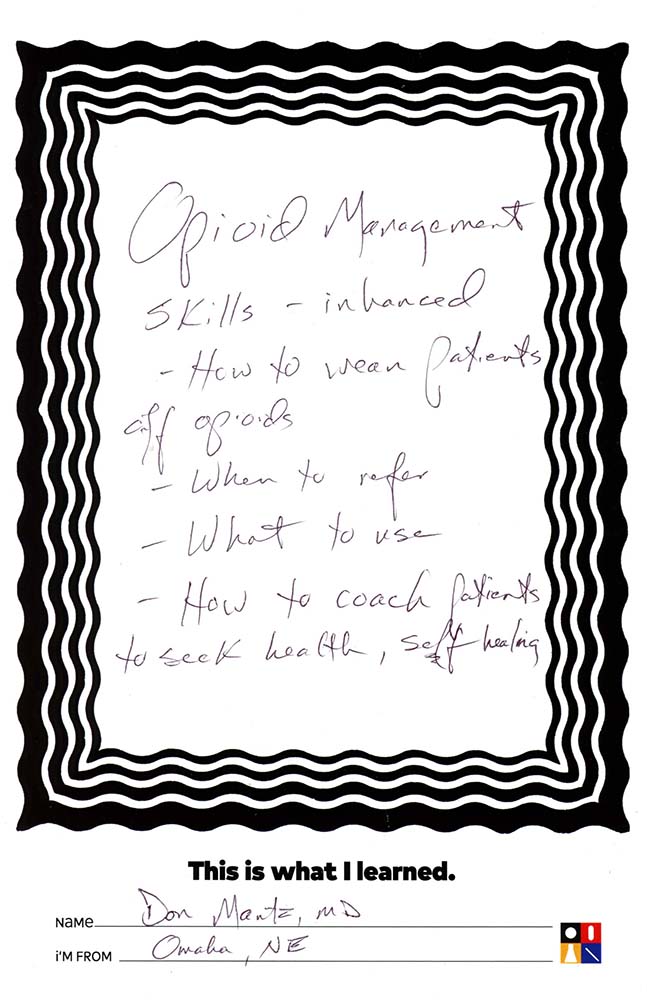 Opioid Management
Skills - inhanced
- How to wean patients
off opioids
- When to refer
- What to use
- How to coach patients
to seek health, self healing
This is what I learned.
Name Don Mantz, MD
i'm from Omaha, NE